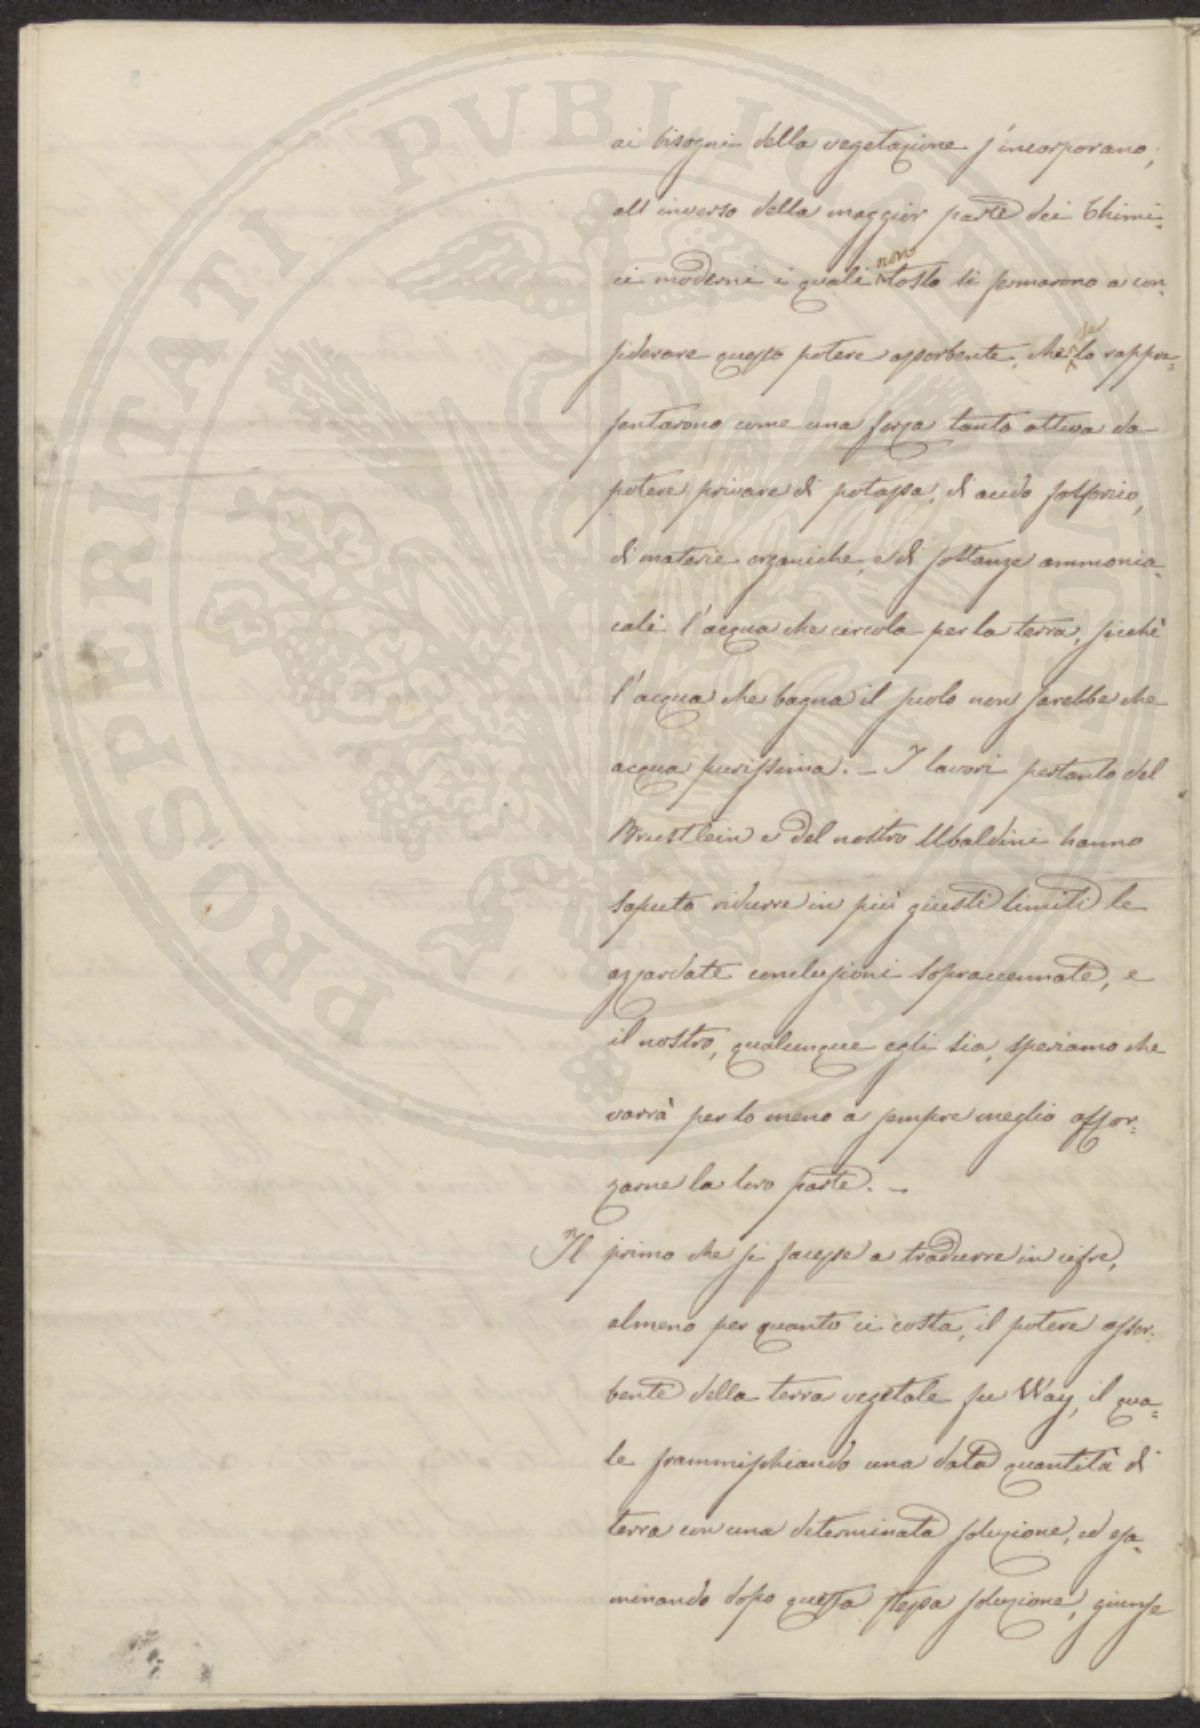 PROSPERITATI PVBLICAE AVGENDAE
ai bisogni della vegetazione s'incorporano,
all inverso della maggior parte dei Chimi-
ci moderni i quali non tosto si fermarono a con-
siderare questo potere assorbente, che se lo rappre-
sentarono come una forza tanto attiva da
potere privare di potassa, di acido fosforico,
di materie organiche, e di sostanze ammonia-
cali l'acqua che circola per la terra, sicchè
l'acqua che bagna il suolo non sarebbe che
acqua purissima. - I lavori pertanto del
Brustlein e del nostro Ubaldini hanno
saputo ridurre in più giusti limiti le
azzardate conclusioni sopraccennate, e
il nostro, qualunque egli sia, speriamo che
varrà per lo meno a sempre meglio affor-
zarne la loro parte. -
Il primo che si facesse a tradurre in cifre,
almeno per quanto ci costa, il potere assor-
bente della terra vegetale fu Way, il qua-
le frammischiando una data quantità di
terra con una determinata soluzione, ed esa-
minando dopo questa stessa soluzione, giunse